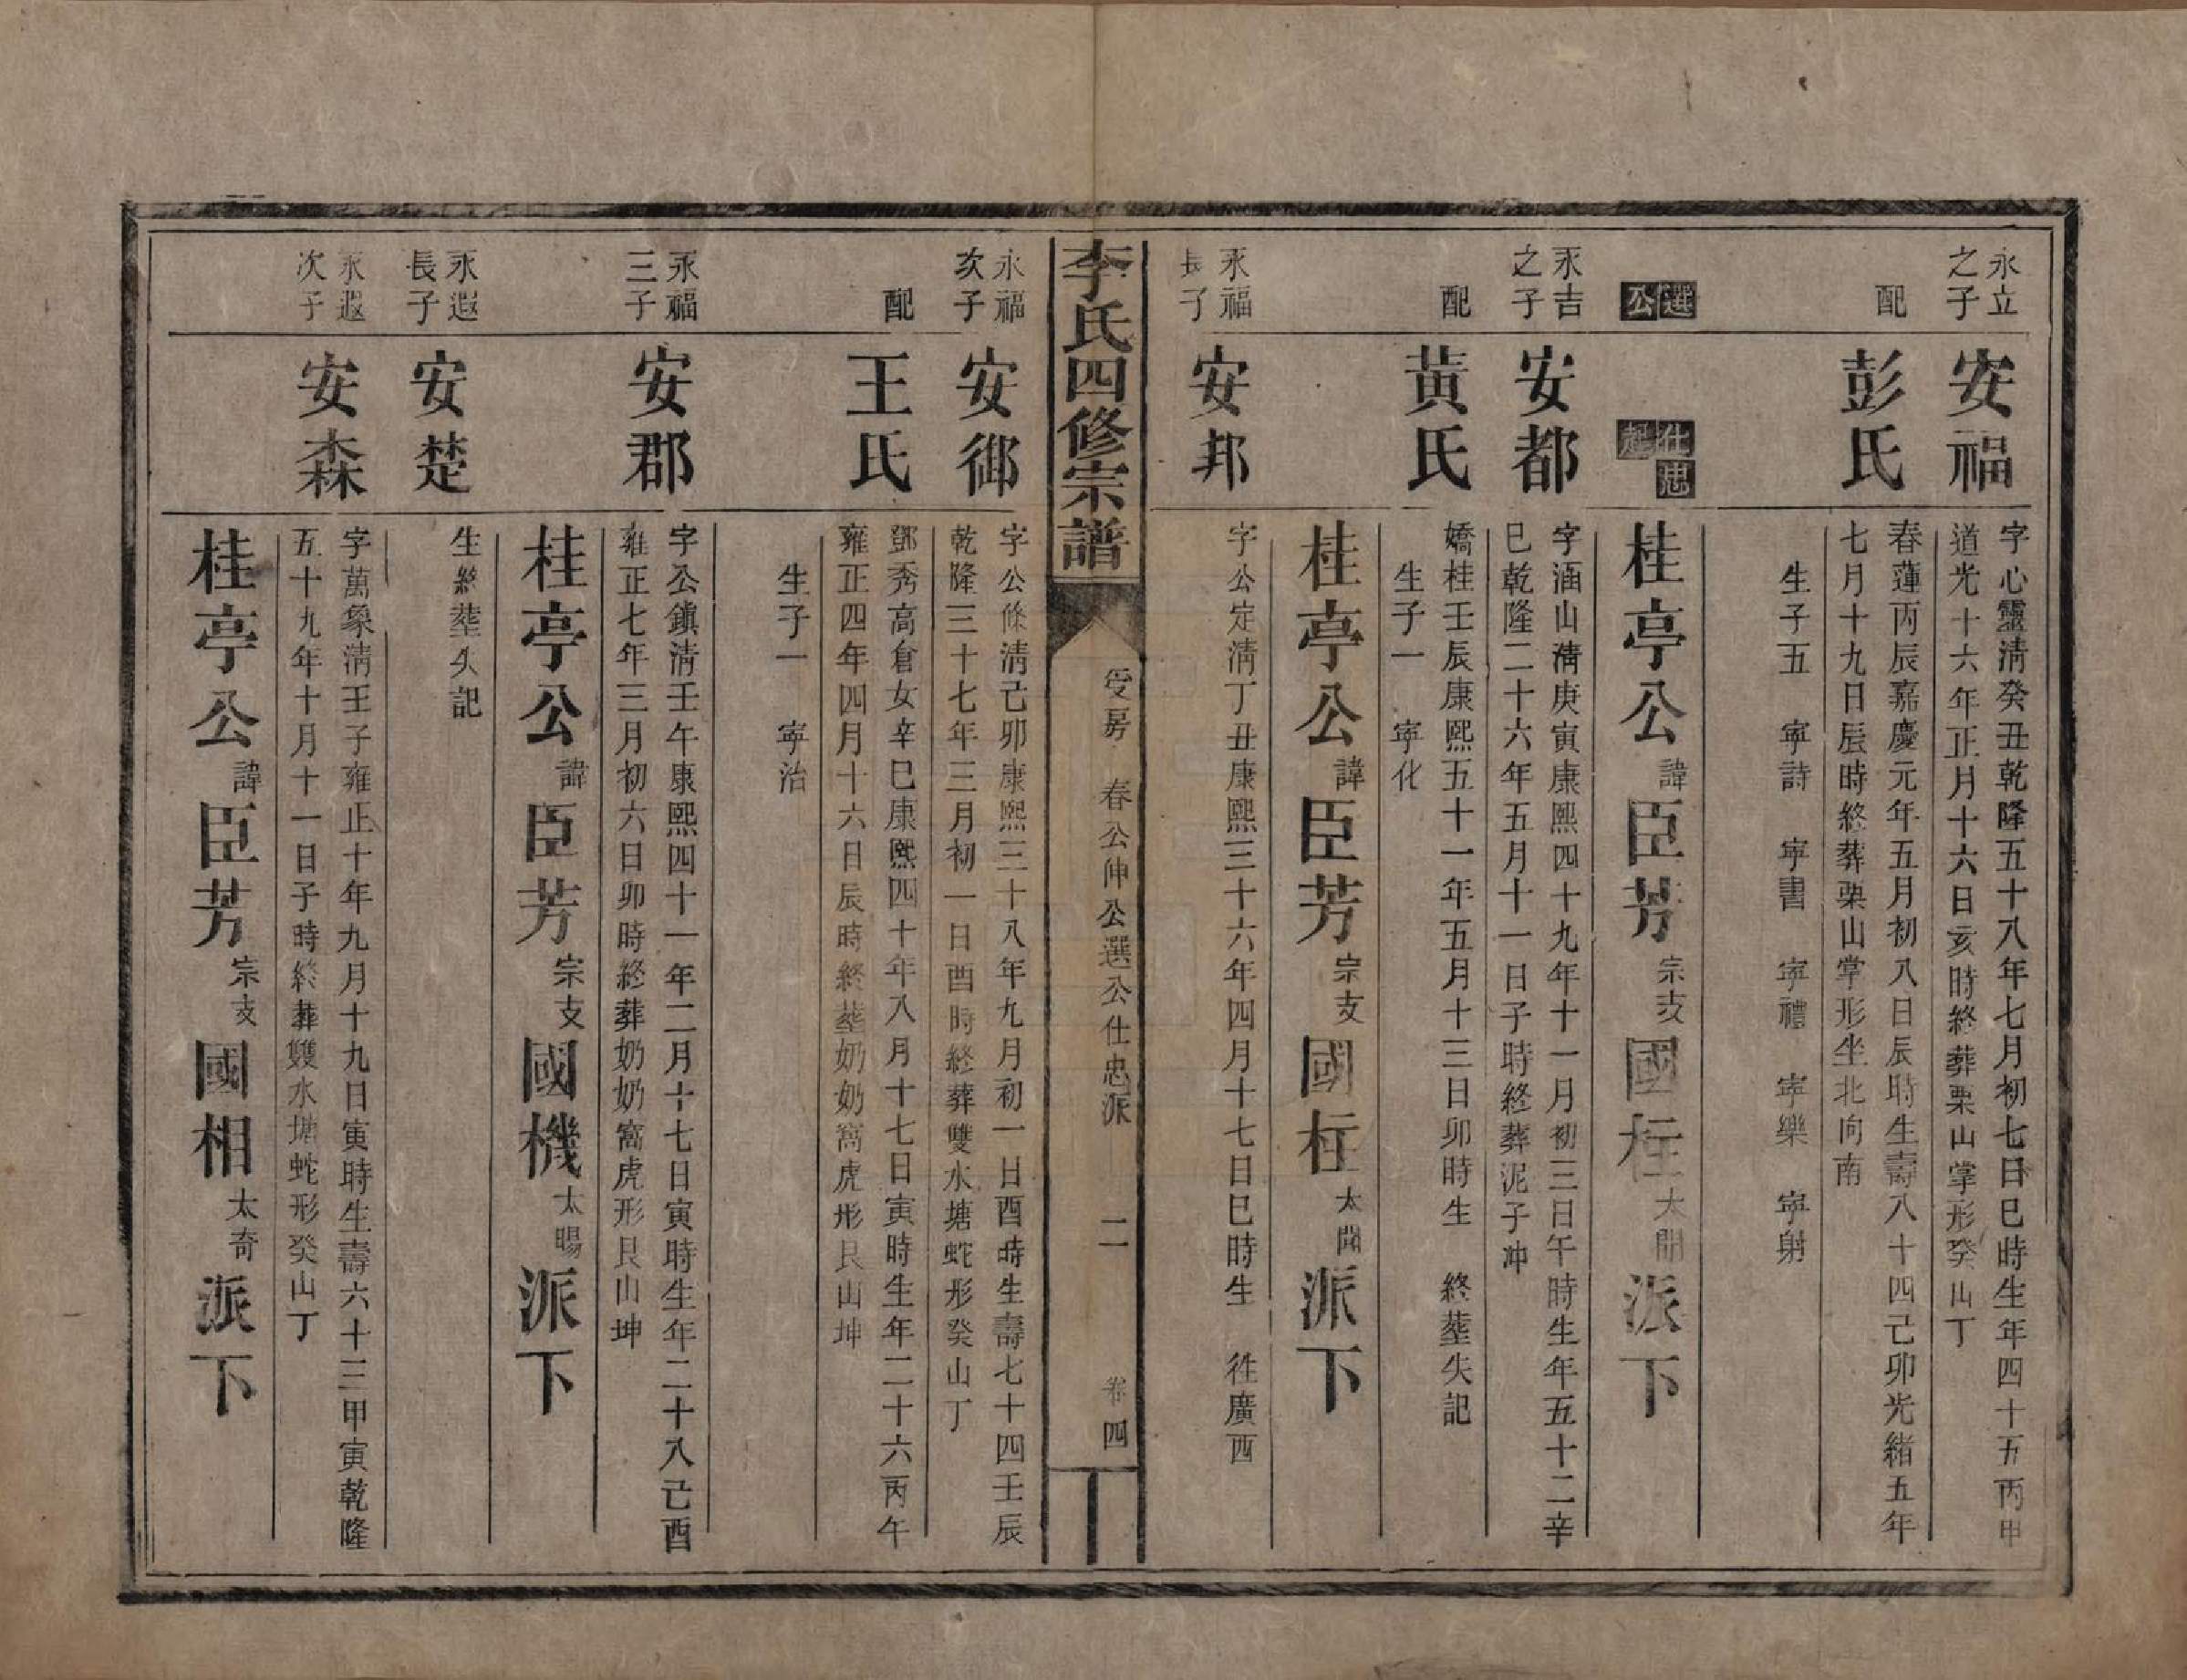 永立
之子
安福
字心靈淸癸丑乾隆五十八年七月初七日巳時生年四十五丙申
道光十六年正月十六日亥時終葬栗山掌形癸山丁
配
彭氏
春蓮丙辰嘉慶元年五月初八日辰時生壽八十四己卯光緒五年
七月十九日辰時終葬栗山掌形坐北向南
生子五 寧詩 寧書 寧禮 寧樂 寧射
選
公
仕忠
起
桂亭公諱臣芳宗支國柱太開派下
永吉
之子
安都
字涵山淸庚寅康熙四十九年十一月初三日午時生年五十二辛
巳乾隆二十六年五月十一日子時終葬泥子冲
配
黃氏
嬌桂壬辰康熙五十一年五月十三日卯時生 終塟失記
生子一 寧化
桂亭公諱臣芳宗支國柱太開派下
永福
長子
安邦
字公定淸丁丑康熙三十六年四月十七日巳時生 徃廣西
李氏四修宗譜
受房 春公伸公選公仕忠派 二 卷四
永福
次子
安御
字公條淸己卯康熙三十八年九月初一日酉時生壽七十四壬辰
乾隆三十七年三月初一日酉時終葬雙水塘蛇形癸山丁
配
王氏
鄧秀高倉女辛巳康熙四十年八月十七日寅時生年二十六丙午
雍正四年四月十六日辰時終塟奶奶窩虎形艮山坤
生子一 寧治
永福
三子
安郡
字公鎮淸壬午康熙四十一年二月十七日寅時生年二十八己酉
雍正七年三月初六日卯時終葬奶奶窩虎形艮山坤
桂亭公諱臣芳宗支國機太暘派下
永遐
長子
安楚
生終塟失記
永遐
次子
安森
字萬象淸王子雍正十年九月十九日寅時生壽六十三甲寅乾隆
五十九年十月十一日子時終葬雙水塘蛇形癸山丁
桂亭公諱臣芳宗支國相太奇派下